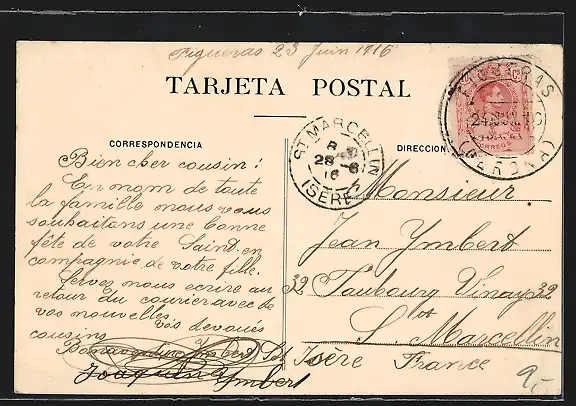 Figueras 23 Juin 1916
TARJETA POSTAL
CORRESPONDENCIA
DIRECCION
FIGUERAS
24 JUN. 16
(GERONA)
CORREOS
ST MARCELLIN
28 -6
16
ISERE
Bien cher cousin!
En nom de toute
la famille nous vous
souhaitons une bonne
fête de votre Saint en
compagnie de votre fille.
Servez nous ecrire au
retour du courier avec de
vos nouvelles.
vos devoués
cousins
Bonaventure Ymbert
Joaquina Ymbert
Monsieur
Jean Ymbert
32 Faubourg Vinay 32
St Marcellin
Isère France
9,-